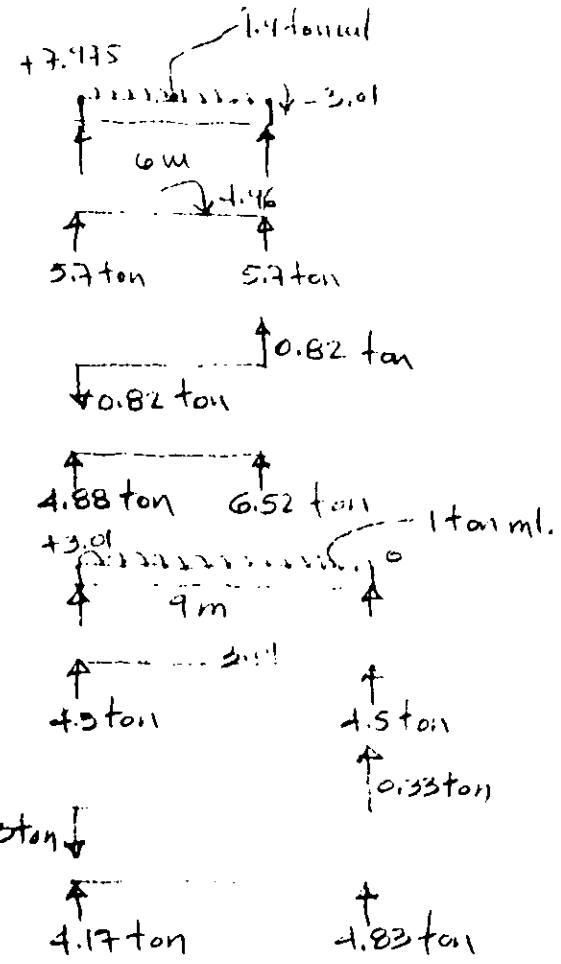 +7.475
1.9 ton ml
-3.01
6 m
4.46
5.7 ton 5.7 ton
0.82 ton
0.82 ton
4.88 ton 6.52 ton
+3.01 1 ton ml.
0
9 m
4.5 ton 4.5 ton
0.33 ton
3 ton
4.17 ton 4.83 ton